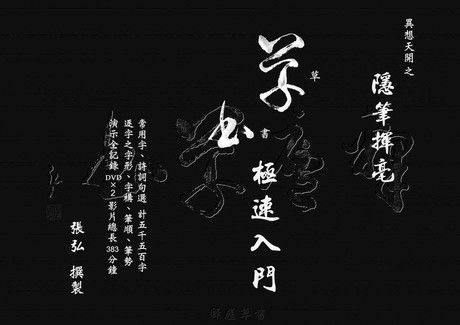 異想天開之
隱筆揮毫
草書
草
書
極速入門
常用字、詩詞句選 計五千五百字
逐字之字形、字構、筆順、筆勢
演示全記錄 DVD×2 影片總長 383 分鐘
張弘 撰製